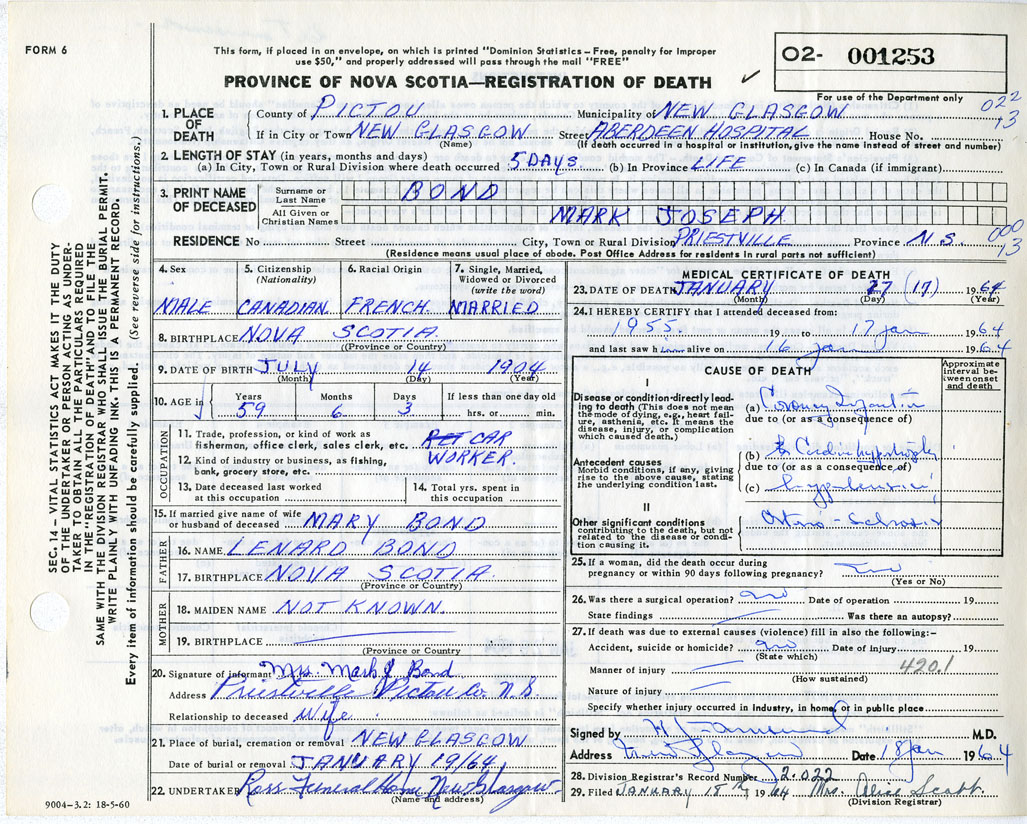 FORM 6
This form, if placed in an envelope, on which is printed "Dominion Statistics—Free, penalty for improper
use $50," and properly addressed will pass through the mail "FREE"
PROVINCE OF NOVA SCOTIA—REGISTRATION OF DEATH ✓
O2- 001253
For use of the Department only
022
13
1. PLACE OF DEATH
County of PICTOU Municipality of NEW GLASGOW
If in City or Town NEW GLASGOW Street ABERDEEN HOSPITAL House No.
(Name) (If death occurred in a hospital or institution, give the name instead of street and number)
2. LENGTH OF STAY (in years, months and days)
(a) In City, Town or Rural Division where death occurred 5 DAYS. (b) In Province LIFE (c) In Canada (if immigrant)
3. PRINT NAME OF DECEASED
Surname or Last Name BOND
All Given or Christian Names MARK JOSEPH
000
13
RESIDENCE No Street City, Town or Rural Division PRIESTVILLE Province N.S.
(Residence means usual place of abode. Post Office Address for residents in rural parts not sufficient)
4. Sex MALE
5. Citizenship (Nationality) CANADIAN
6. Racial Origin FRENCH
7. Single, Married, Widowed or Divorced (write the word) MARRIED
8. BIRTHPLACE NOVA SCOTIA
(Province or Country)
9. DATE OF BIRTH JULY 14 1904
(Month) (Day) (Year)
10. AGE in Years 59 Months 6 Days 3 If less than one day old hrs. or min.
OCCUPATION
11. Trade, profession, or kind of work as fisherman, office clerk, sales clerk, etc. CAR
12. Kind of industry or business, as fishing, bank, grocery store, etc. WORKER.
13. Date deceased last worked at this occupation
14. Total yrs. spent in this occupation
15. If married give name of wife or husband of deceased MARY BOND
FATHER
16. NAME LENARD BOND
17. BIRTHPLACE NOVA SCOTIA
(Province or Country)
MOTHER
18. MAIDEN NAME NOT KNOWN
19. BIRTHPLACE
(Province or Country)
20. Signature of informant Mrs. Mark J Bond
Address Priestville Pictou Co. N.S.
Relationship to deceased Wife
21. Place of burial, cremation or removal NEW GLASGOW
Date of burial or removal JANUARY 19/64
22. UNDERTAKER Ross Funeral Home New Glasgow
(Name and address)
9004—3.2: 18-5-60
MEDICAL CERTIFICATE OF DEATH
23. DATE OF DEATH JANUARY 17 (17) 1964
(Month) (Day) (Year)
24. I HEREBY CERTIFY that I attended deceased from:
1955 19 to 17 Jan 1964
and last saw him alive on 16 Jan 1964
CAUSE OF DEATH
Approximate interval between onset and death
I
Disease or condition directly leading to death (This does not mean the mode of dying, e.g., heart failure, asthenia, etc. It means the disease, injury, or complication which caused death.)
(a) Coronary
due to (or as a consequence of)
Antecedent causes
Morbid conditions, if any, giving rise to the above cause, stating the underlying condition last.
(b) hypertrophy
due to (or as a consequence of)
(c)
II
Other significant conditions
contributing to the death, but not related to the disease or condition causing it.
25. If a woman, did the death occur during
pregnancy or within 90 days following pregnancy?
(Yes or No)
26. Was there a surgical operation? no Date of operation 19
State findings Was there an autopsy?
27. If death was due to external causes (violence) fill in also the following:—
Accident, suicide or homicide? no Date of injury 19
(State which)
Manner of injury 4201
(How sustained)
Nature of injury
Specify whether injury occurred in industry, in home, or in public place
Signed by M.D.
Address New Glasgow Date 18 Jan 1964
28. Division Registrar's Record Number 2.022
29. Filed JANUARY 18th 1964 Mrs. Alice Scott
(Division Registrar)
SEC. 14 – VITAL STATISTICS ACT MAKES IT THE DUTY
OF THE UNDERTAKER OR PERSON ACTING AS UNDER-
TAKER TO OBTAIN ALL THE PARTICULARS REQUIRED
IN THE "REGISTRATION OF DEATH" AND TO FILE THE
SAME WITH THE DIVISION REGISTRAR WHO SHALL ISSUE THE BURIAL PERMIT.
WRITE PLAINLY WITH UNFADING INK. THIS IS A PERMANENT RECORD.
Every item of information should be carefully supplied. (See reverse side for instructions.)